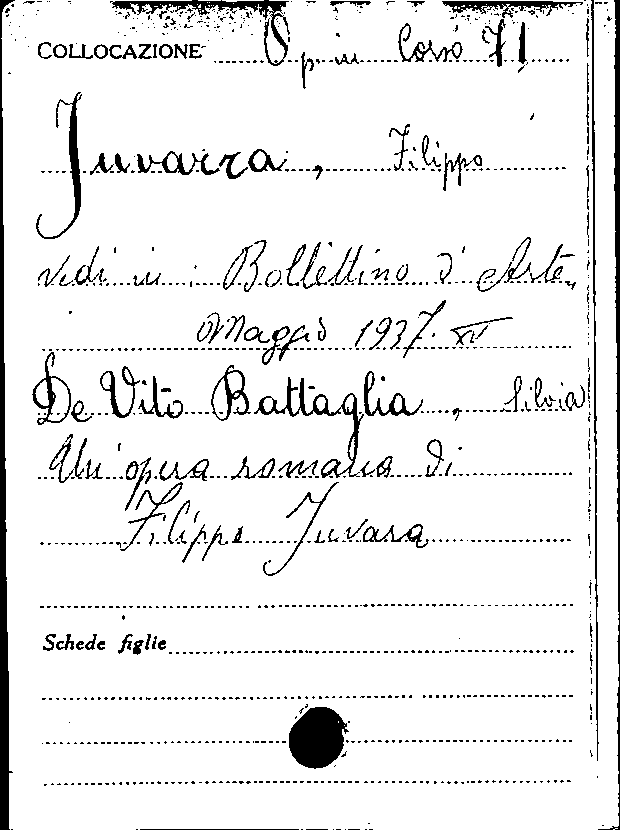 COLLOCAZIONE Op. in Corso 71
Juvarra, Filippo
vedi in: Bollettino d'Arte.
Maggio 1937. XV
De Vito Battaglia, Silvia
Un'opera romana di
Filippo Juvara
Schede figlie